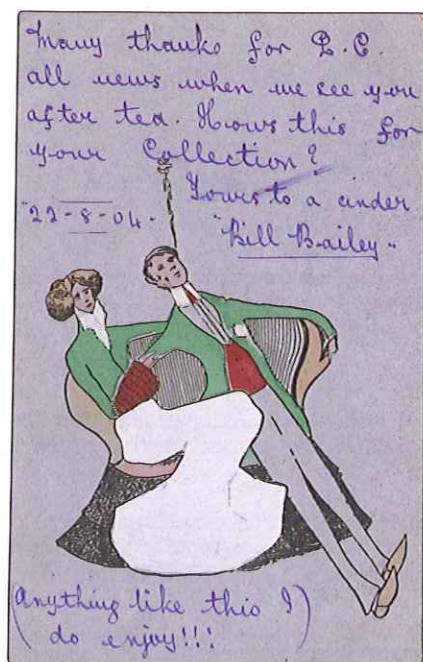 Many thanks for P.C.
all news when we see you
after tea. Hows this for
your Collection?
Yours to a cinder
22-8-04.
"Bill Bailey"
(Anything like this I)
do enjoy!!!